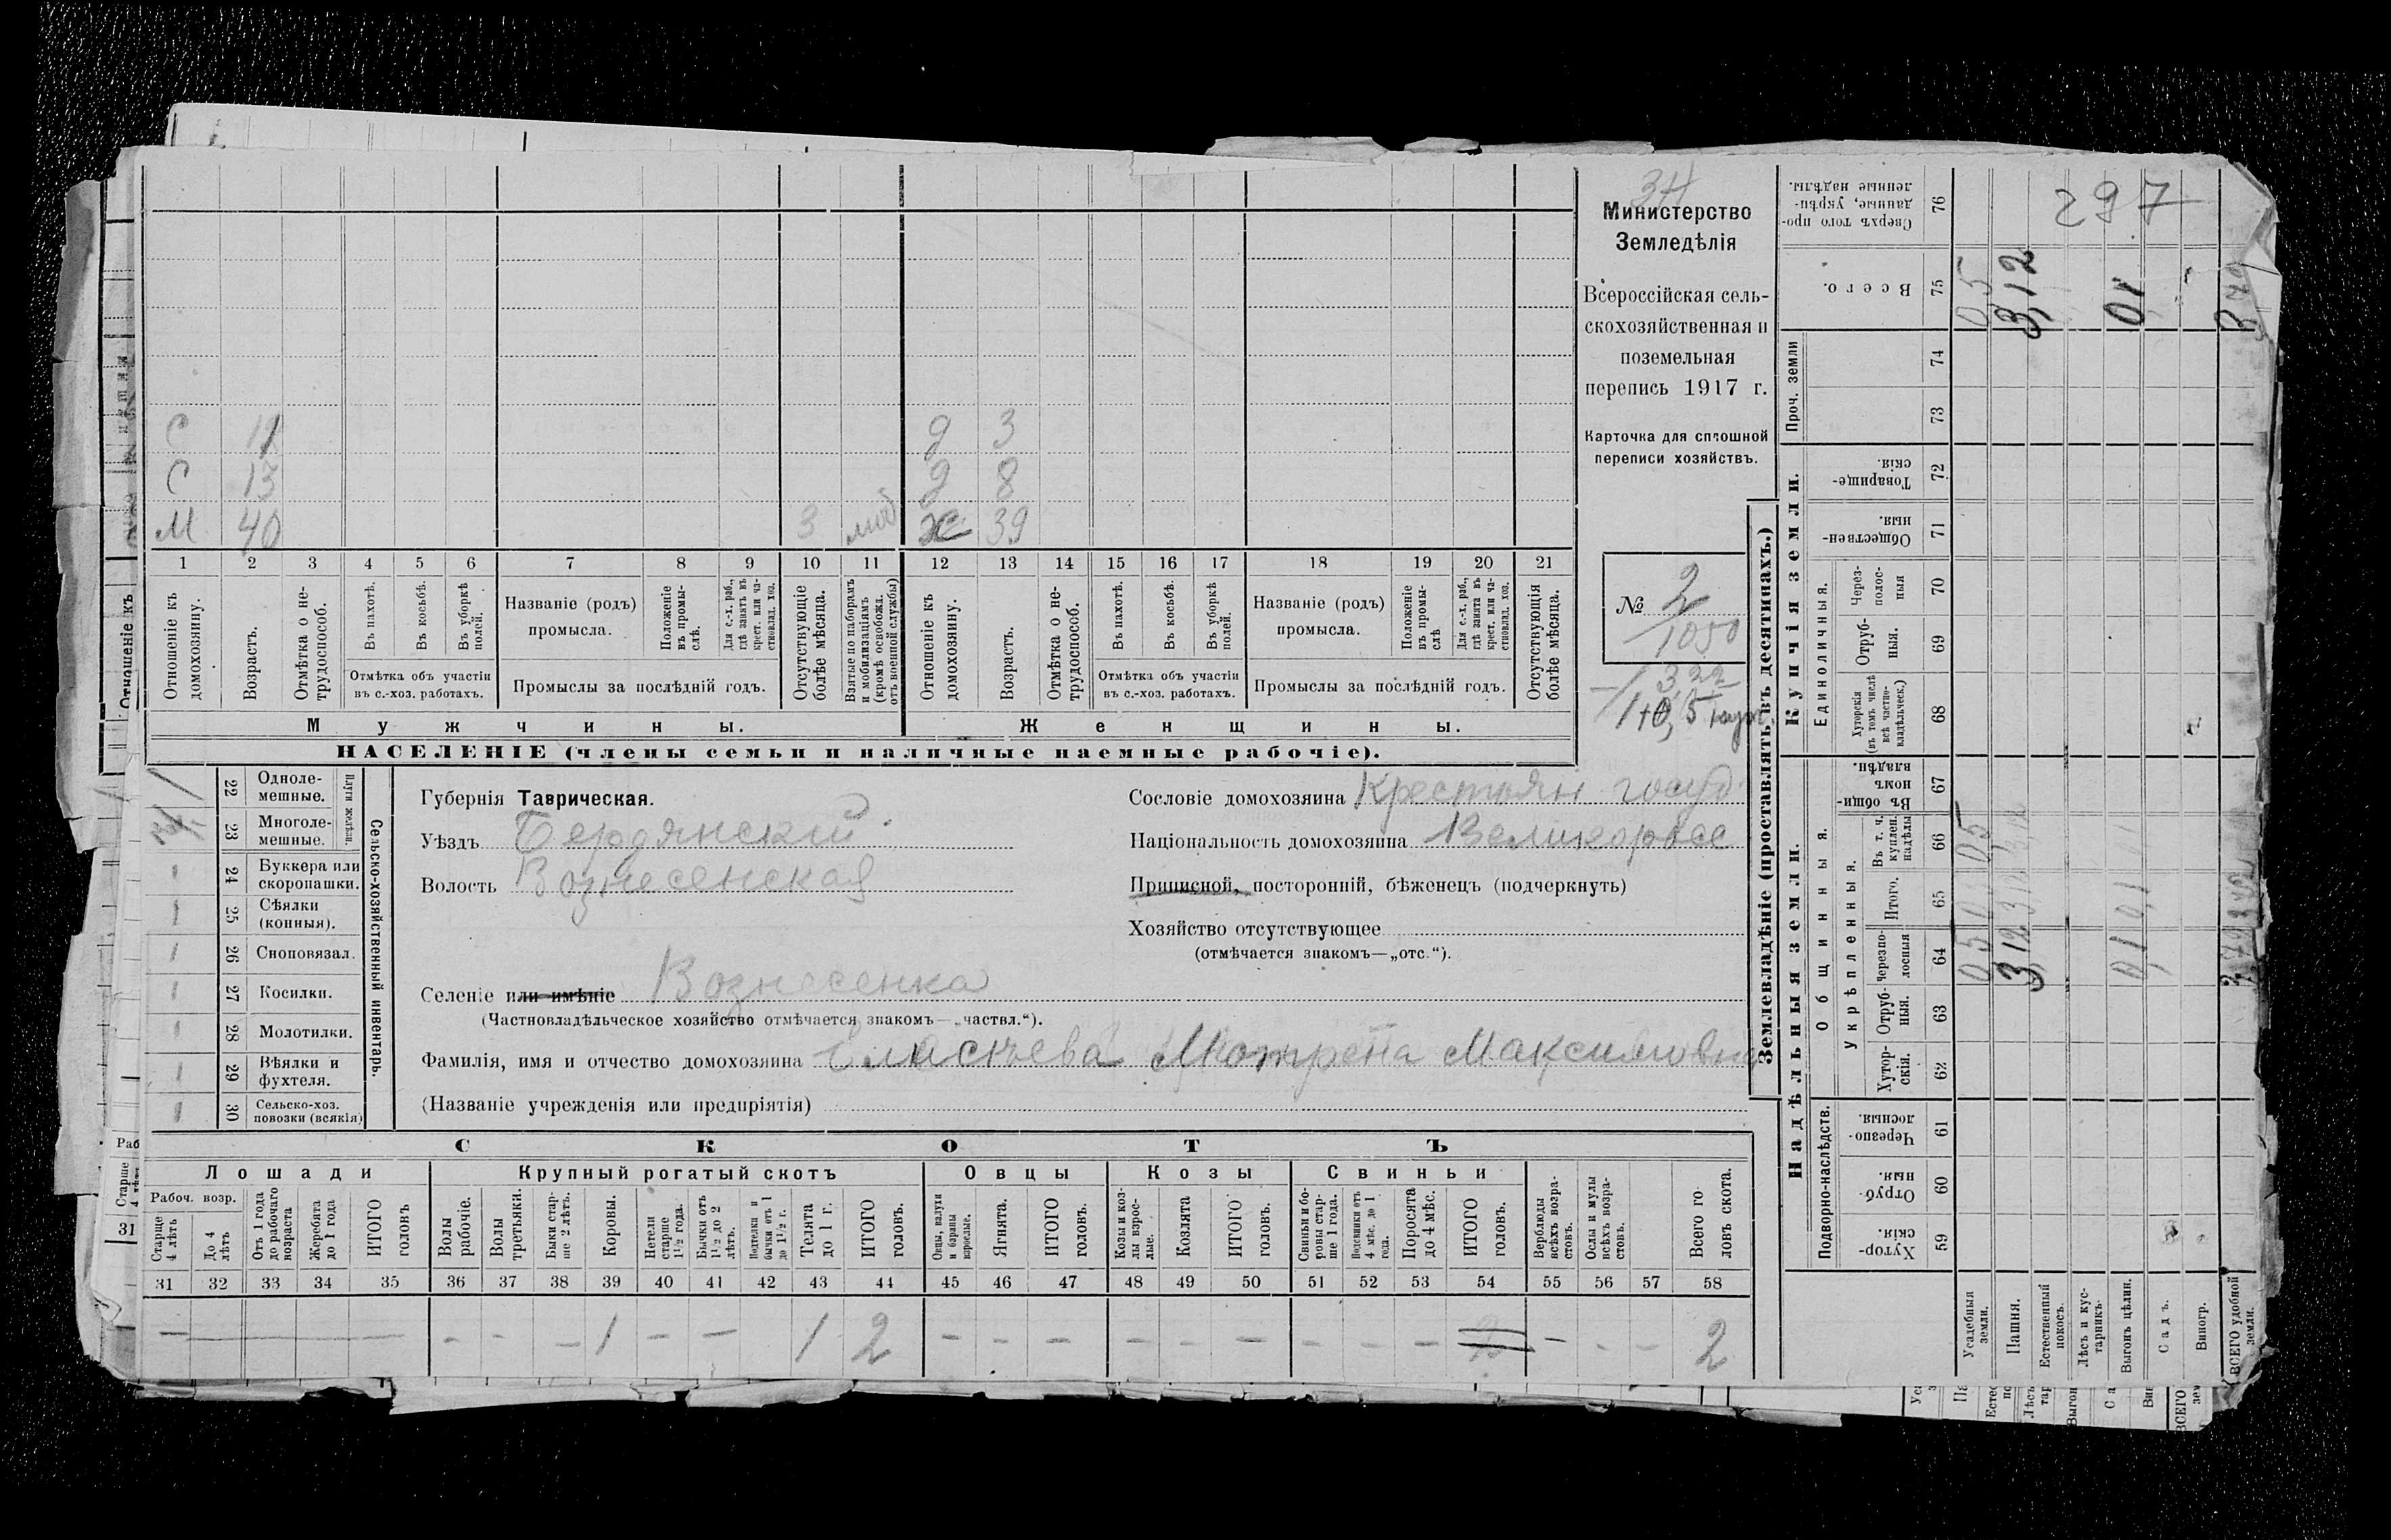 34
Министерство
Земледѣлія
Всероссійская сель-
скохозяйственная и
поземельная
перепись 1917 г.
Карточка для сплошной
переписи хозяйствъ.
№ 2
1050
3,22
С 11 д 3
С 13 д 8
М 40 3 моб ж 39
1 2 3 4 5 6 7 8 9 10 11 12 13 14 15 16 17 18 19 20 21
Отношеніе къ домохозяину.
Возрастъ.
Отмѣтка о не-трудоспособ.
Въ пахотѣ.
Въ косьбѣ.
Въ уборкѣ полей.
Отмѣтка объ участіи
въ с.-хоз. работахъ.
Названіе (родъ)
промысла.
Положеніе въ промы-слѣ.
Для с.-х. раб., гдѣ занятъ въ крест. или ча-стновлад. хоз.
Промыслы за послѣдній годъ.
Отсутствующіе болѣе мѣсяца.
Взятые по наборамъ и мобилизаціямъ (кромѣ освобожд. отъ военной службы)
Отношеніе къ домохозяину.
Возрастъ.
Отмѣтка о не-трудоспособ.
Въ пахотѣ.
Въ косьбѣ.
Въ уборкѣ полей.
Отмѣтка объ участіи
въ с.-хоз. работахъ.
Названіе (родъ)
промысла.
Положеніе въ промы-слѣ
Для с.-х. раб., гдѣ занята въ крест. или ча-стновлад. хоз.
Промыслы за послѣдній годъ.
Отсутствующія болѣе мѣсяца.
Мужчины. Женщины.
НАСЕЛЕНІЕ (члены семьи и наличные наемные рабочіе).
Сельско-хозяйственный инвентарь.
Плуги желѣзн.
22 Одноле-мешные.
23 Многоле-мешные.
24 Буккера или скоропашки.
25 Сѣялки (конныя).
26 Сноповязал.
27 Косилки.
28 Молотилки.
29 Вѣялки и фухтеля.
30 Сельско-хоз. повозки (всякія)
Губернія Таврическая.
Уѣздъ Бердянскій
Волость Вознесенская
Сословіе домохозяина Крестьян госуд
Національность домохозяина Великоросс
Приписной, посторонній, бѣженецъ (подчеркнуть)
Хозяйство отсутствующее
(отмѣчается знакомъ—„отс.“).
Селеніе или имѣніе Вознесенка
(Частновладѣльческое хозяйство отмѣчается знакомъ—„частвл.“).
Фамилія, имя и отчество домохозяина Мотрена Максимовна
(Названіе учрежденія или предпріятія)
СКОТЪ
Лошади Крупный рогатый скотъ Овцы Козы Свиньи
Рабоч. возр.
Старше 4 лѣтъ
До 4 лѣтъ
Отъ 1 года до рабочаго возраста
Жеребята до 1 года
ИТОГО головъ
Волы рабочіе.
Волы третьяки.
Быки стар-ше 2 лѣтъ.
Коровы.
Нетели старше 1½ года.
Бычки отъ 1½ до 2 лѣтъ.
Подтелки и бычки отъ 1 до 1½ г.
Телята до 1 г.
ИТОГО головъ.
Овцы, валухи и бараны взрослые.
Ягнята.
ИТОГО головъ.
Козы и коз-лы взрос-лые.
Козлята
ИТОГО головъ.
Свиньи и бо-ровы стар-ше 1 года.
Подсвинки отъ 4 мѣс. до 1 года.
Поросята до 4 мѣс.
ИТОГО головъ.
Верблюды всѣхъ возра-стовъ.
Ослы и мулы всѣхъ возра-стовъ.
Всего го-ловъ скота.
31 32 33 34 35 36 37 38 39 40 41 42 43 44 45 46 47 48 49 50 51 52 53 54 55 56 57 58
— — — — — 1 — — 1 2 — — — — — — — — — — — — 2
Землевладѣніе (проставлять въ десятинахъ.)
Надѣльныя земли. Купчія земли.
Проч. земли
Сверхъ того про-данные, укрѣп-ленные надѣлы. 76
297
Всего. 75 05 3,12 01 3,72
74
73
Товарище-скія. 72
Обществен-ныя. 71
Единоличныя.
Через-полос-ныя 70
Отруб-ныя. 69
Хуторскія (въ томъ числѣ всѣ частно-владѣльческ.) 68
Въ общин-номъ владѣн. 67
Общинныя.
Укрѣпленныя.
Въ т. ч. куплен. надѣлы 66
Итого. 65
Черезпо-лосныя 64 05 3,12 01
Отруб-ныя. 63
Хутор-скія. 62
Подворно-наслѣдств.
Черезпо-лосныя. 61
Отруб-ныя. 60
Хутор-скія. 59
Усадебныя земли.
Пашня.
Естественный покосъ.
Лѣсъ и кус-тарникъ.
Выгонъ цѣлин.
Садъ.
Виногр.
ВСЕГО удобной земли.